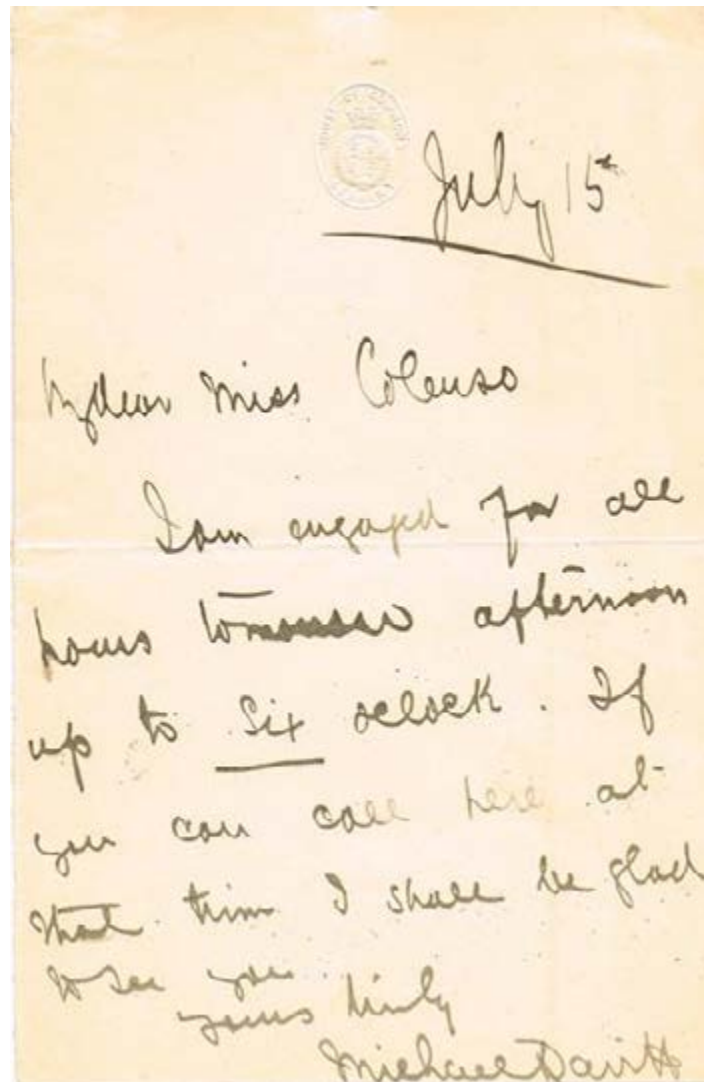 July 15th
My dear Miss Colenso
I am engaged for all
hours tomorrow afternoon
up to Six oclock. If
you can call here at
that time I shall be glad
to see you
yours truly
Michael Davitt